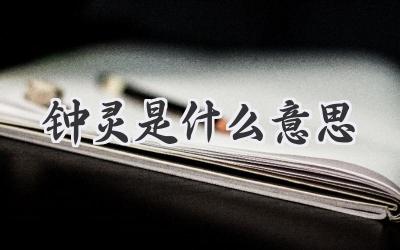 钟灵是什么意思